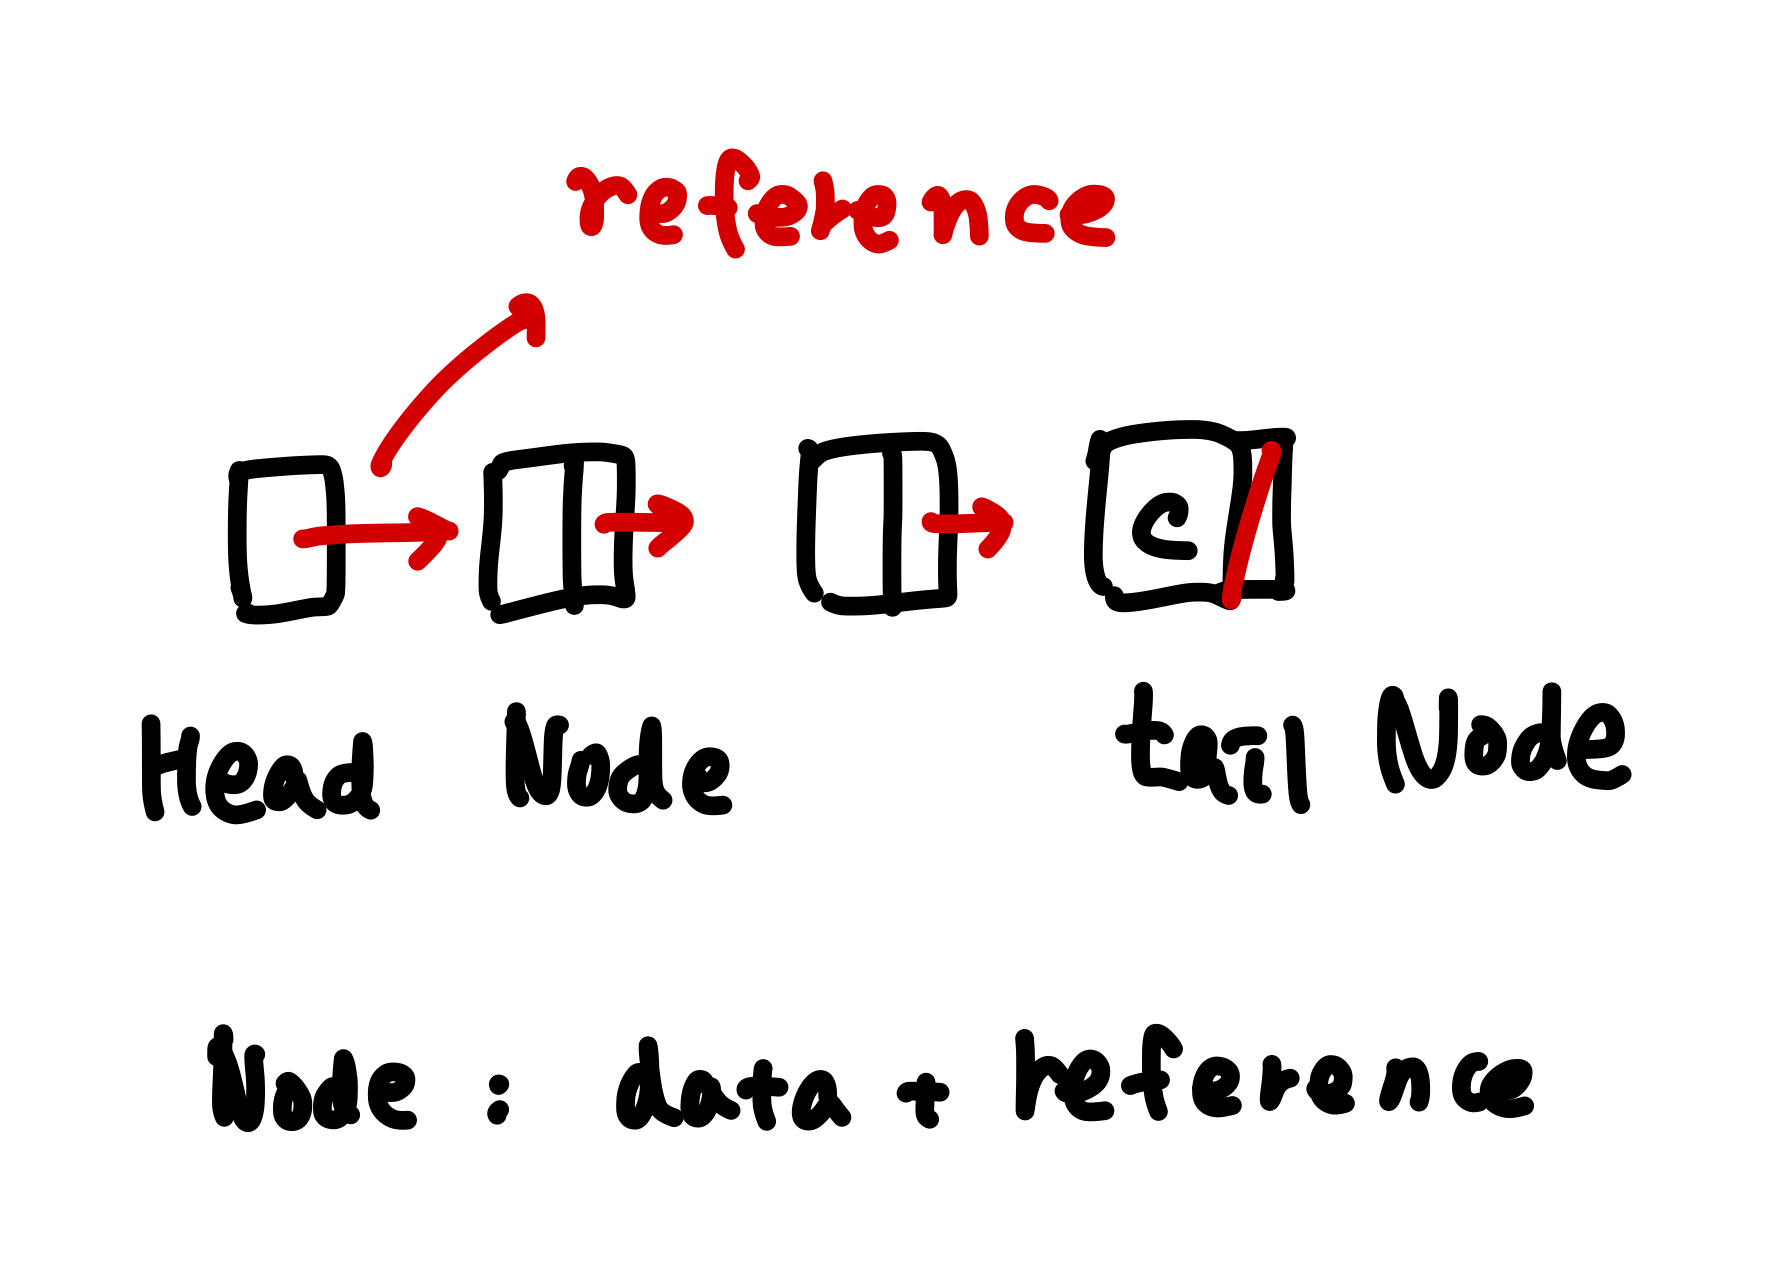 reference
c
Head Node tail Node
Node : data + reference